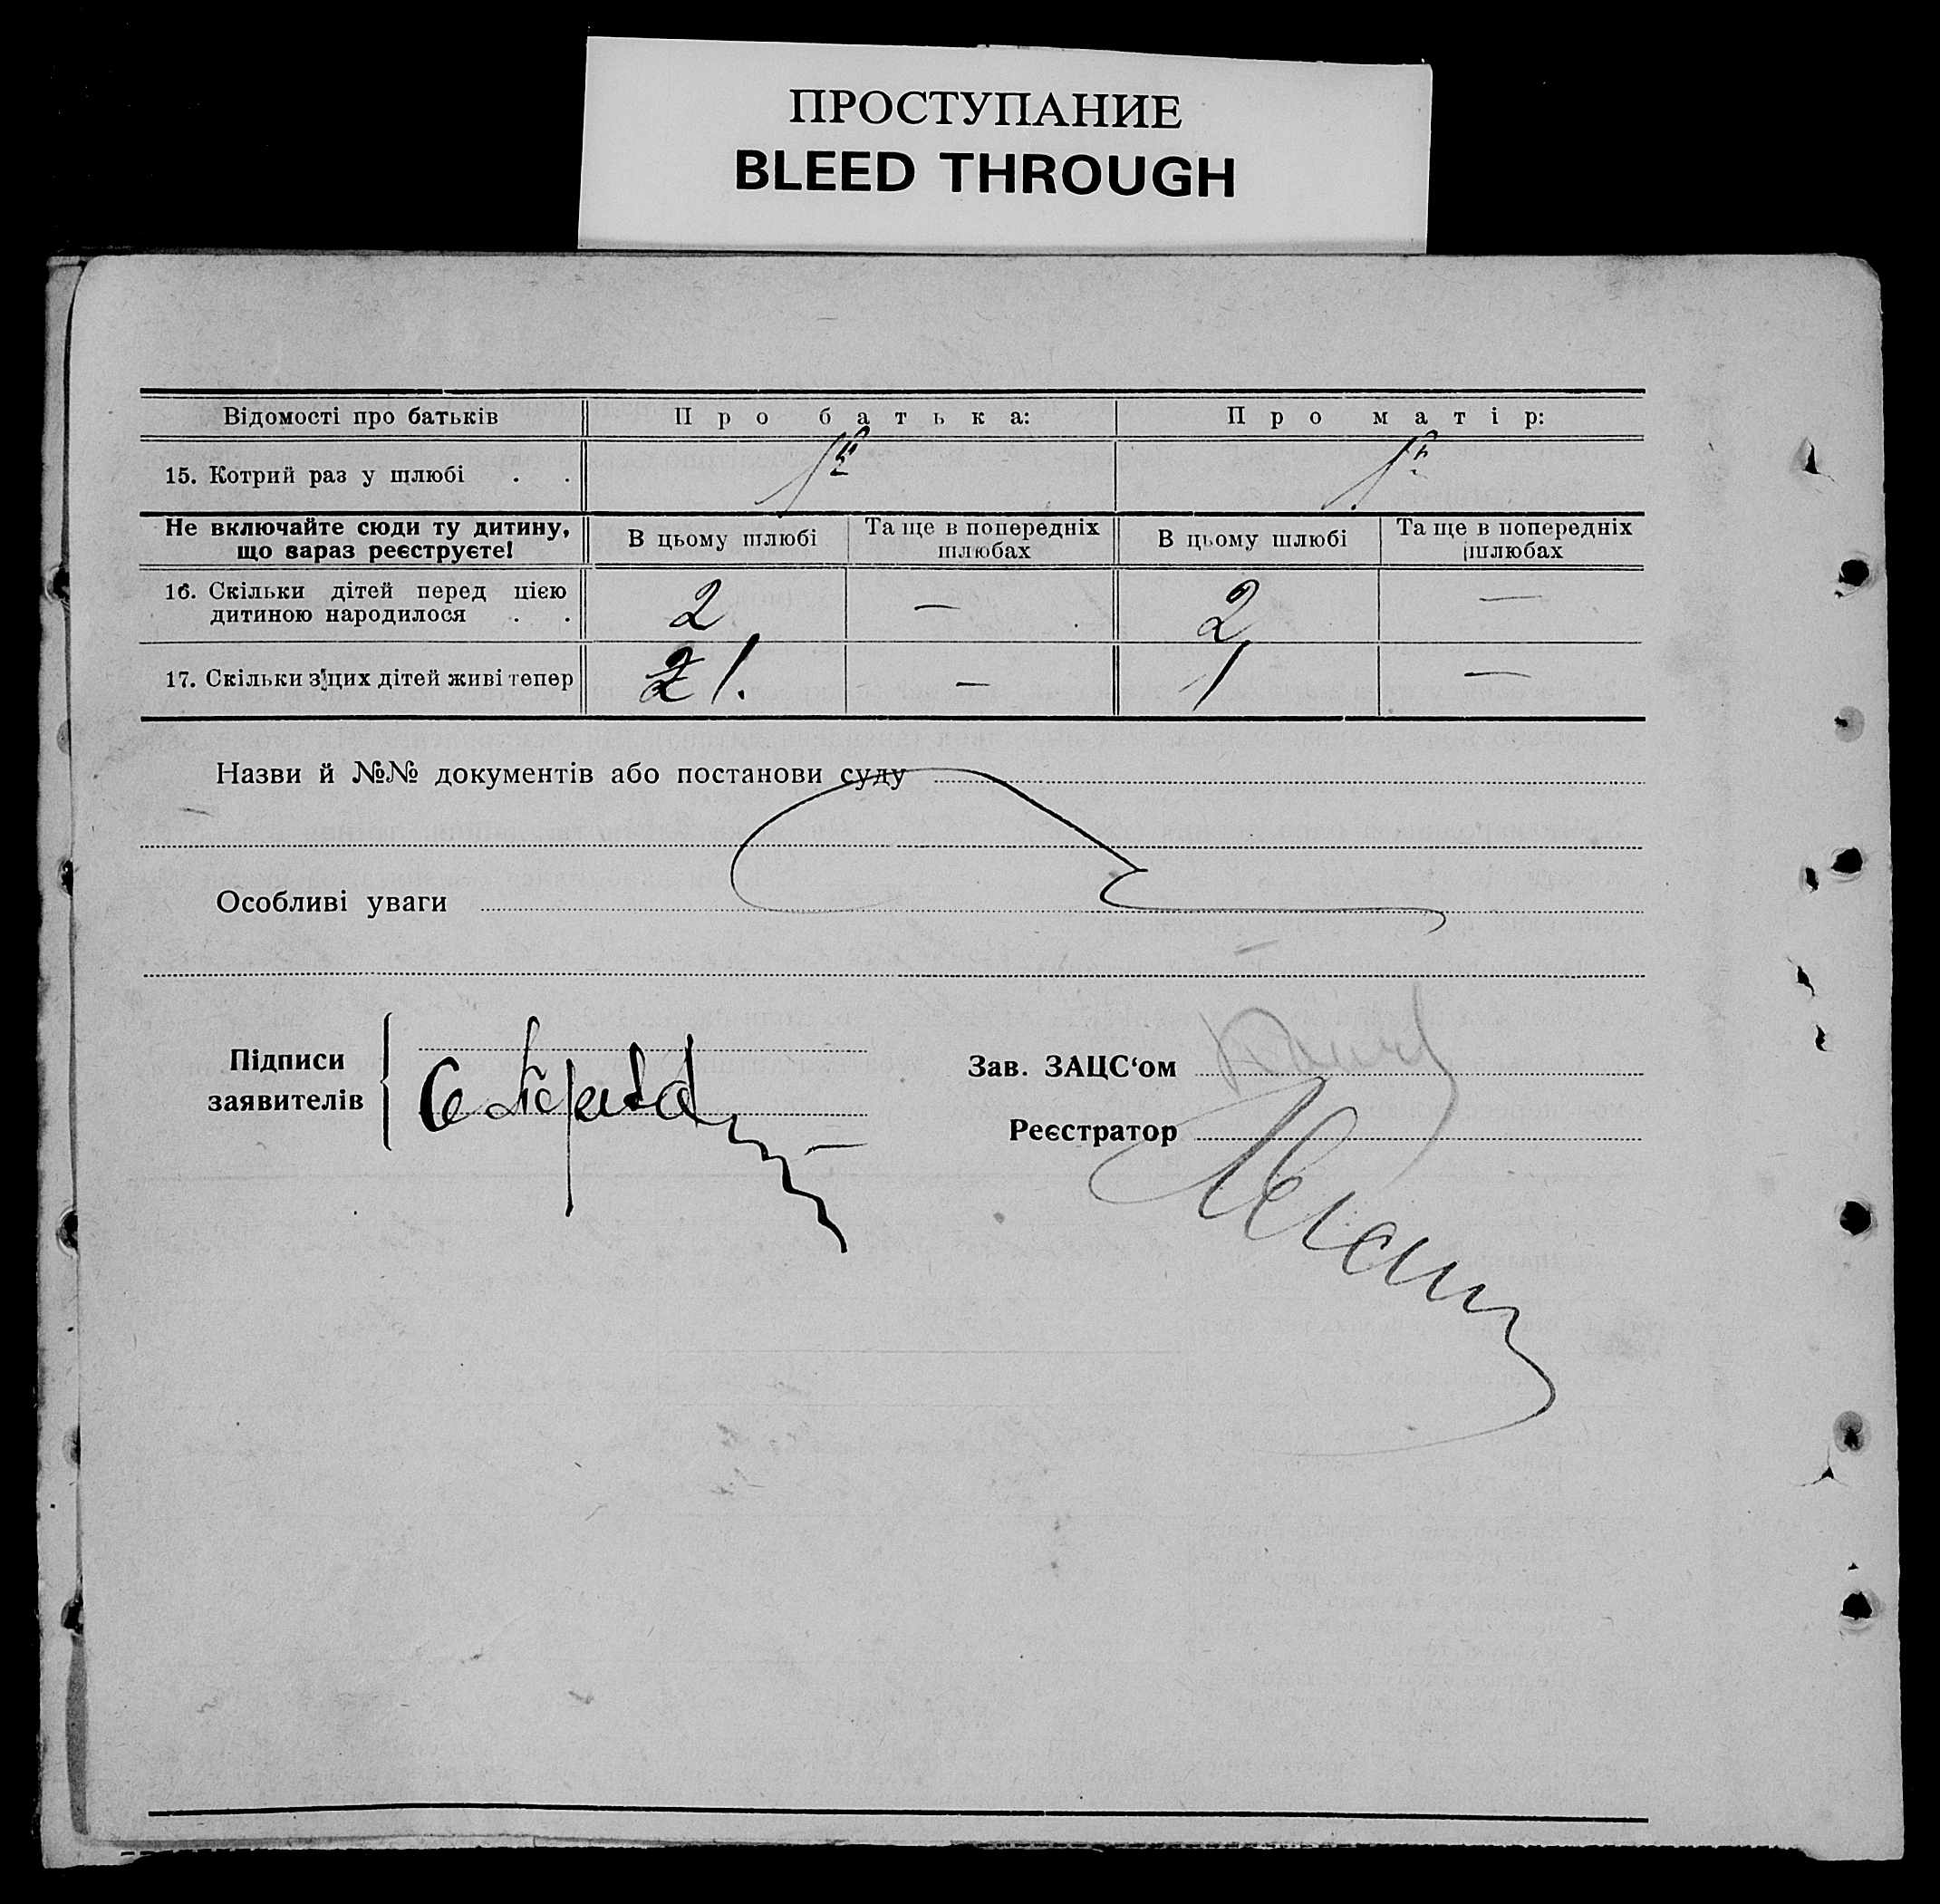 ПРОСТУПАНИЕ
BLEED THROUGH
Відомості про батьків Про батька: Про матір:
15. Котрий раз у шлюбі . .
Не включайте сюди ту дитину, що зараз реєструєте! В цьому шлюбі Та ще в попередніх шлюбах В цьому шлюбі Та ще в попередніх шлюбах
16. Скільки дітей перед цією дитиною народилося . . 2 — 2 —
17. Скільки з цих дітей живі тепер 2 1. — 1 —
Назви й №№ документів або постанови суду
Особливі уваги
Підписи
заявителів
Зав. ЗАЦС‘ом
Реєстратор